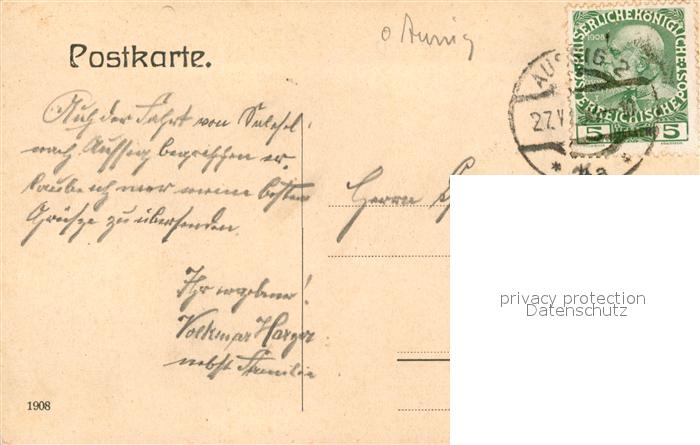 o Aussig
Postkarte.
KAISERLICHE KÖNIGLICHE
1908
ÖSTERREICHISCHE POST
5 5
AUSSIG 2
27.V
Auf der Fahrt von Salesel
nach Aussig begriffen er-
laube ich mir meine besten
Grüße zu übersenden.
Ihr ergebener
Volkmar Harger
nebst Familie
Herrn
privacy protection
Datenschutz
1908